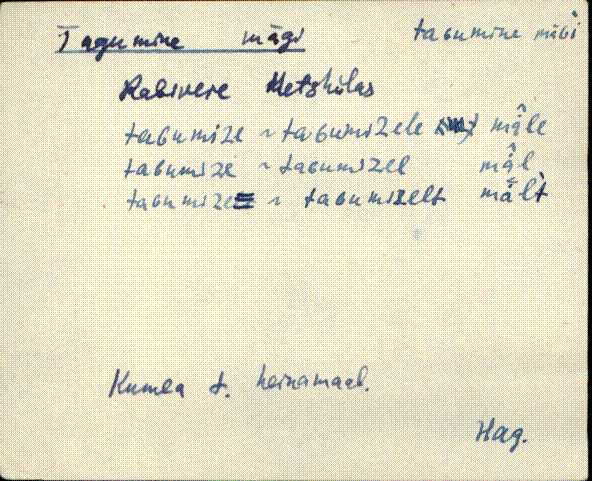 Tagumine mägi taɢumine mäɢi
Rabivere Metsküla
taɢumize ~ taɢumizele mä̂le
taɢumize ~ taɢumizel mä̂l
taɢumize ~ taɢumizelt mä̂lt
Kumea t. heinamaal.
Hag.